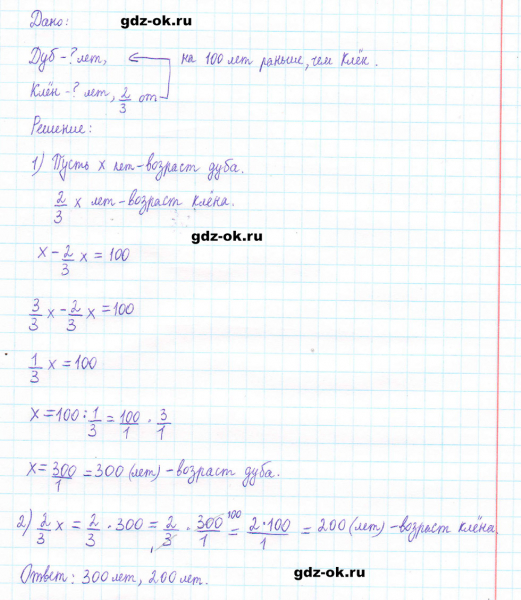 Дано:
gdz-ok.ru
Дуб - ? лет, на 100 лет раньше, чем клён.
Клён - ? лет, 2/3 от
Решение:
1) Пусть x лет - возраст дуба.
2/3 x лет - возраст клёна.
gdz-ok.ru
x - 2/3 x = 100
3/3 x - 2/3 x = 100
1/3 x = 100
x = 100 : 1/3 = 100/1 · 3/1
x = 300/1 = 300 (лет) - возраст дуба.
2) 2/3 x = 2/3 · 300 = 2/3 · 300/1 100 = 2·100/1 = 200 (лет) - возраст клёна.
Ответ: 300 лет, 200 лет.
gdz-ok.ru